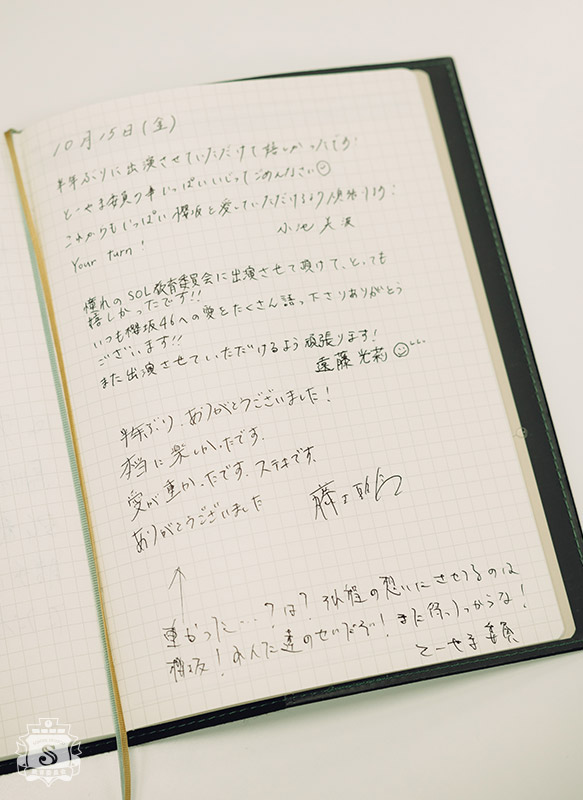 10月15日(金)
半年ぶりに出演させていただけて嬉しかったです!
とーやま委員の事いっぱいいじってごめんなさい
これからもいっぱい櫻坂を愛していただけるよう頑張ります!
Your turn!
小池美波
憧れのSOL教育委員会に出演させて頂けて、とっても
嬉しかったです!!
いつも櫻坂46への愛をたくさん語って下さりありがとう
ございます!!
また出演させていただけるよう頑張ります!
遠藤光莉
半年ぶり、ありがとうございました!
本当に楽しかったです。
愛が重かったです。ステキです。
ありがとうございました
重かった…?は?私程の想いにさせてるのは
櫻坂!あんた達のせいだぞ!また待ってっからな!
とーやま委員
S